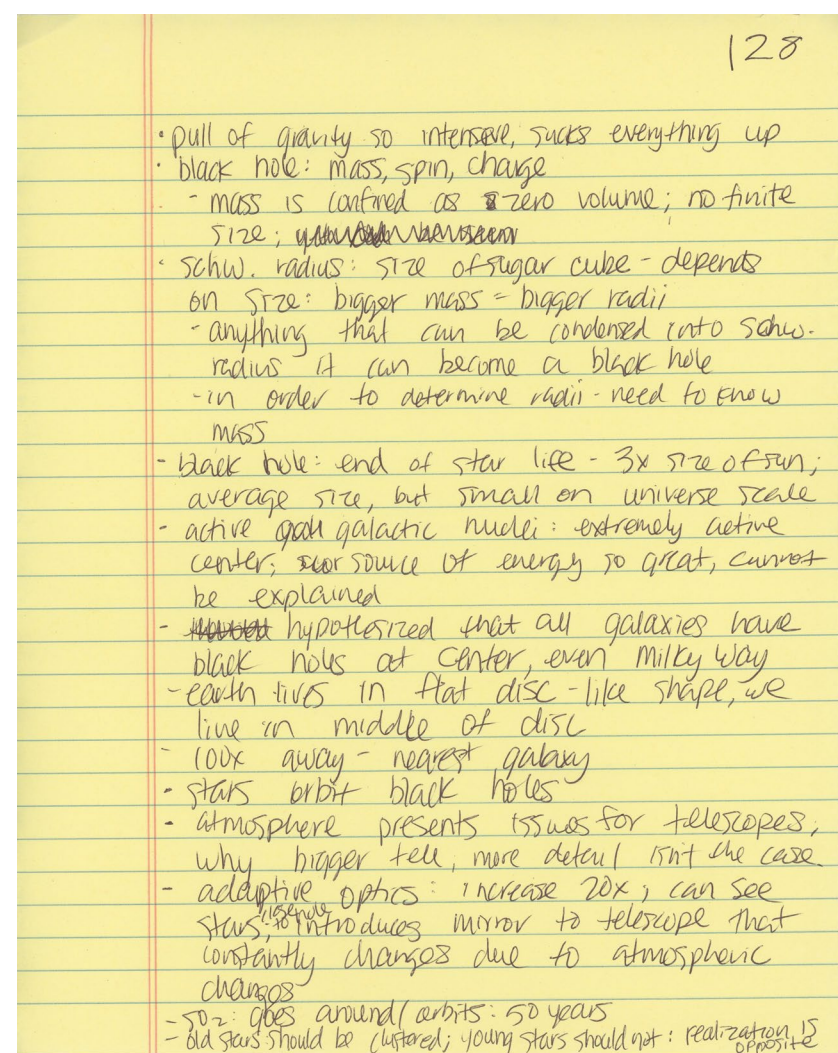 128
• pull of gravity so intensive, sucks everything up
• black hole: mass, spin, charge
- mass is confined as zero volume; no finite
size;
• schw. radius: size of sugar cube - depends
on size: bigger mass = bigger radii
- anything that can be condensed into schw.
radius it can become a black hole
- in order to determine radii - need to know
mass
- black hole: end of star life - 3x size of sun;
average size, but small on universe scale
- active galactic nuclei: extremely active
center; source of energy so great, cannot
be explained
- hypothesized that all galaxies have
black holes at center, even Milky Way
- earth lives in flat disc-like shape, we
live in middle of disc
- 100x away - nearest galaxy
- stars orbit black holes
- atmosphere presents issues for telescopes,
why bigger tele, more detail isn't the case.
- adaptive optics: increase 20x; can see
stars; introduces mirror to telescope that
constantly changes due to atmospheric
changes
- SO2: goes around/orbits: 50 years
- old stars should be clustered; young stars should not: realization is
opposite